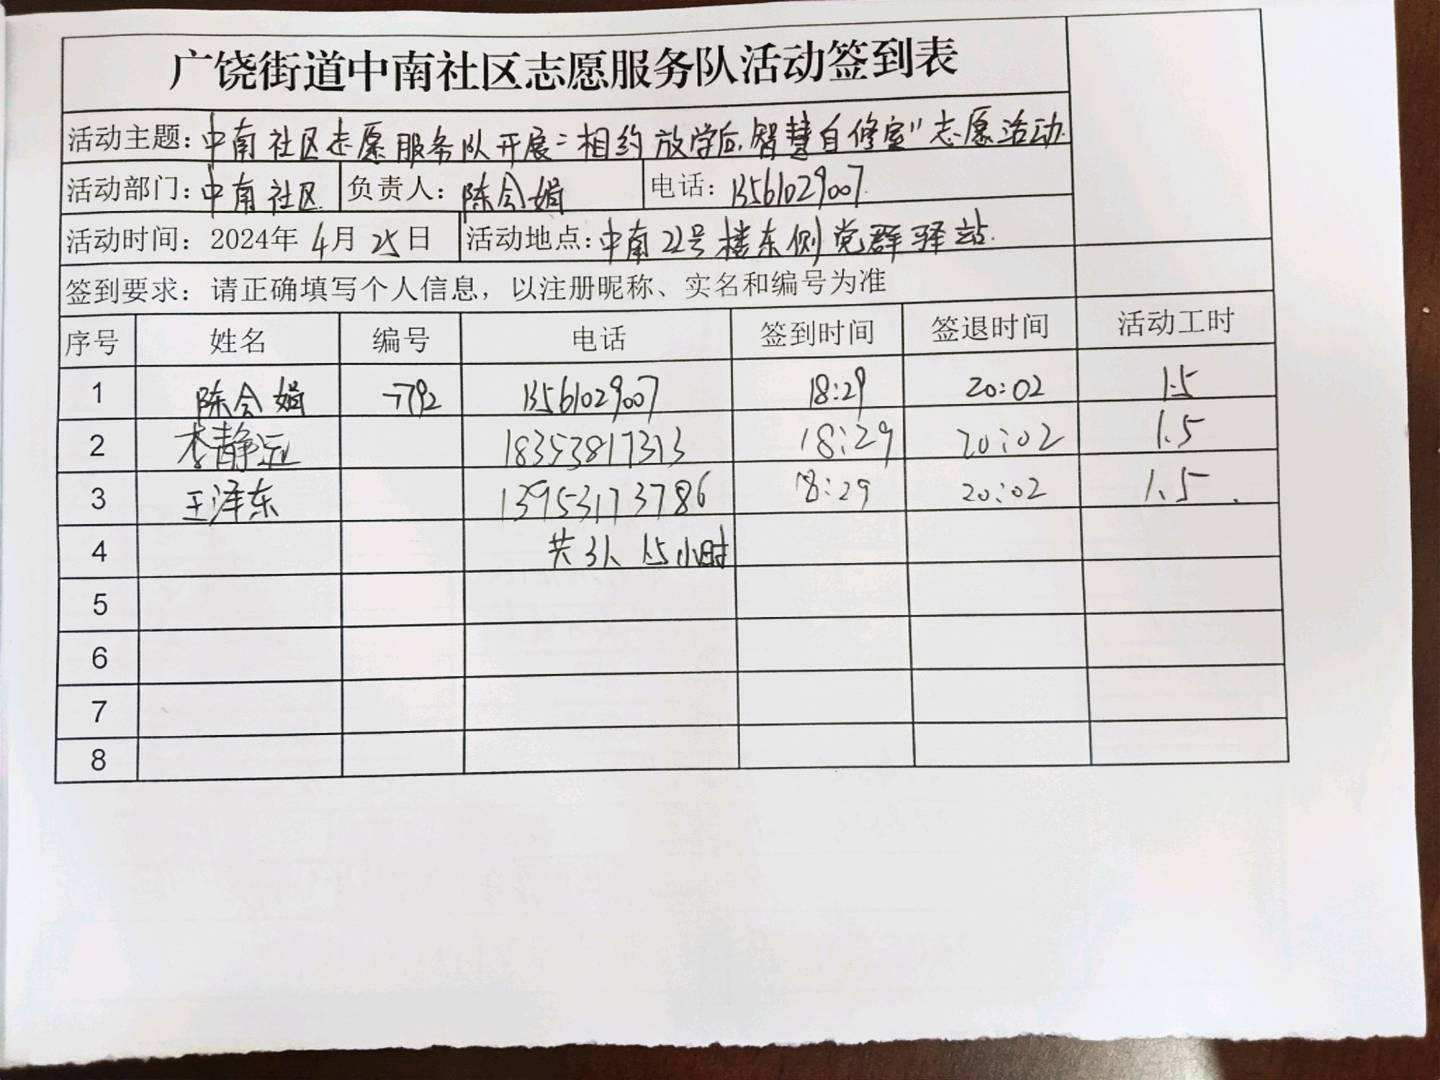 广饶街道中南社区志愿服务队活动签到表
活动主题：中南社区志愿服务队开展"相约放学后,智慧自修室"志愿活动
活动部门：中南社区 负责人：陈会娟 电话：13561029007
活动时间：2024年4月25日 活动地点：中南22号楼东侧党群驿站.
签到要求：请正确填写个人信息，以注册昵称、实名和编号为准
序号 姓名 编号 电话 签到时间 签退时间 活动工时
1 陈会娟 -792 13561029007 18:29 20:02 1.5
2 李静远 18353817313 18:29 20:02 1.5
3 王泽东 13953173786 18:29 20:02 1.5.
4 共3人 1.5小时
5
6
7
8